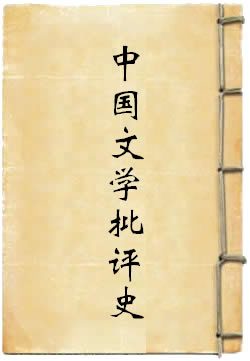 中国文学批评史